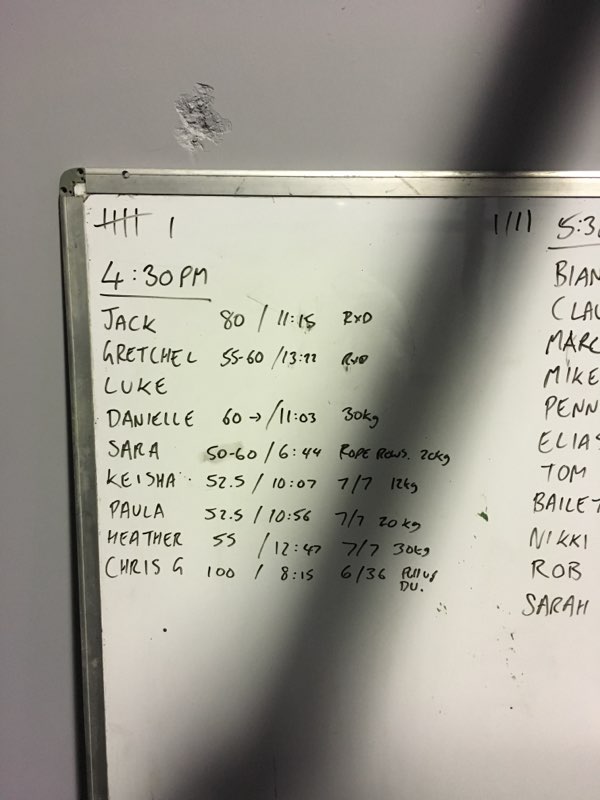 4:30PM
JACK 80 / 11:15 RXD
GRETCHEL 55-60 / 13:22 RXD
LUKE
DANIELLE 60 → / 11:03 30kg
SARA 50-60 / 6:44 ROPE ROWS. 20kg
KEISHA 52.5 / 10:07 7/7 12kg
PAULA 52.5 / 10:56 7/7 20kg
HEATHER 55 / 12:47 7/7 30kg
CHRIS G 100 / 8:15 6/36 PULLUP
DU.
5:3
BIAN
CLAU
MARC
MIKE
PENN
ELIAS
TOM
BAILEY
NIKKI
ROB
SARAH